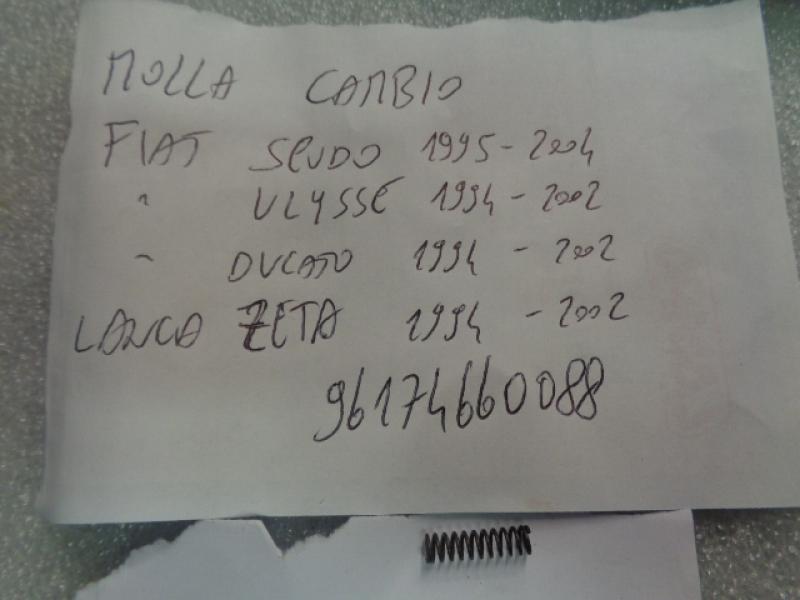 MOLLA CAMBIO
FIAT SCUDO 1995-2004
" ULYSSE 1994-2002
" DUCATO 1994 - 2002
LANCA ZETA 1994 -2002
96174660088